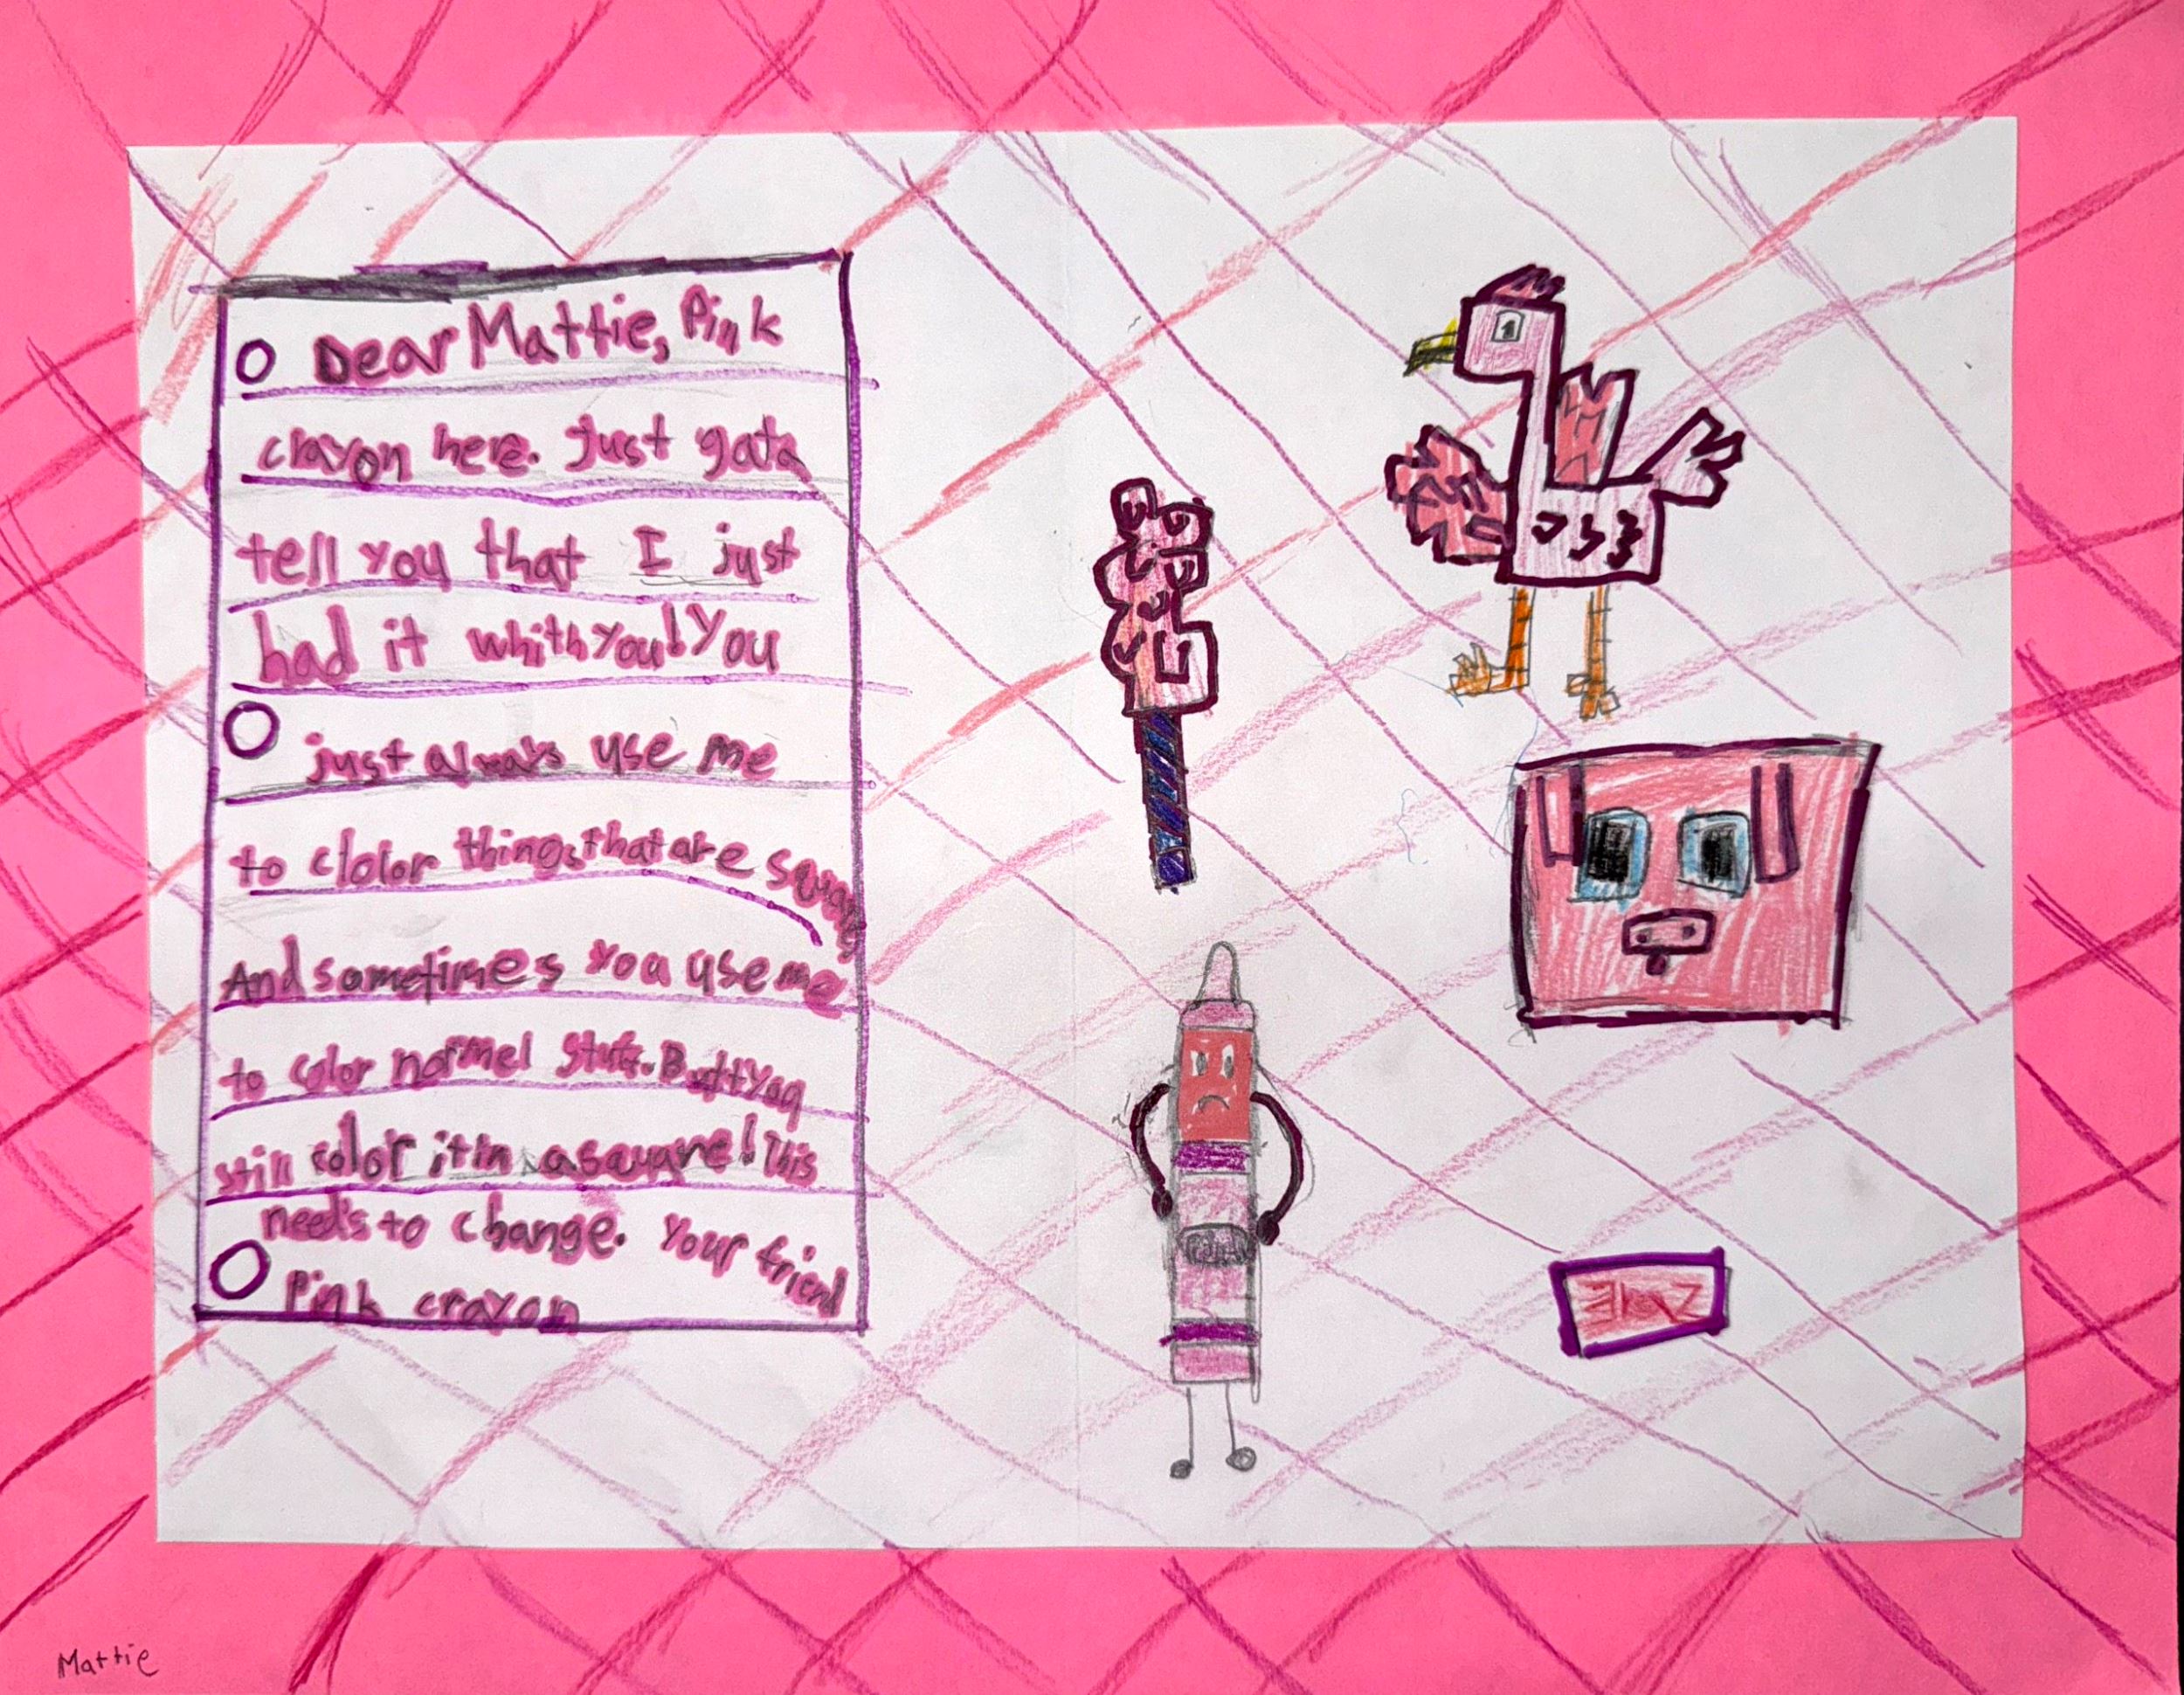 Dear Mattie, Pink
crayon here. Just gata
tell you that I just
had it whith you! You
just always use me
to clolor things that are square
And sometimes you use me
to color normel stuff. Butt you
still color it in a square! This
need's to change. Your friend
Pink crayon
Mattie